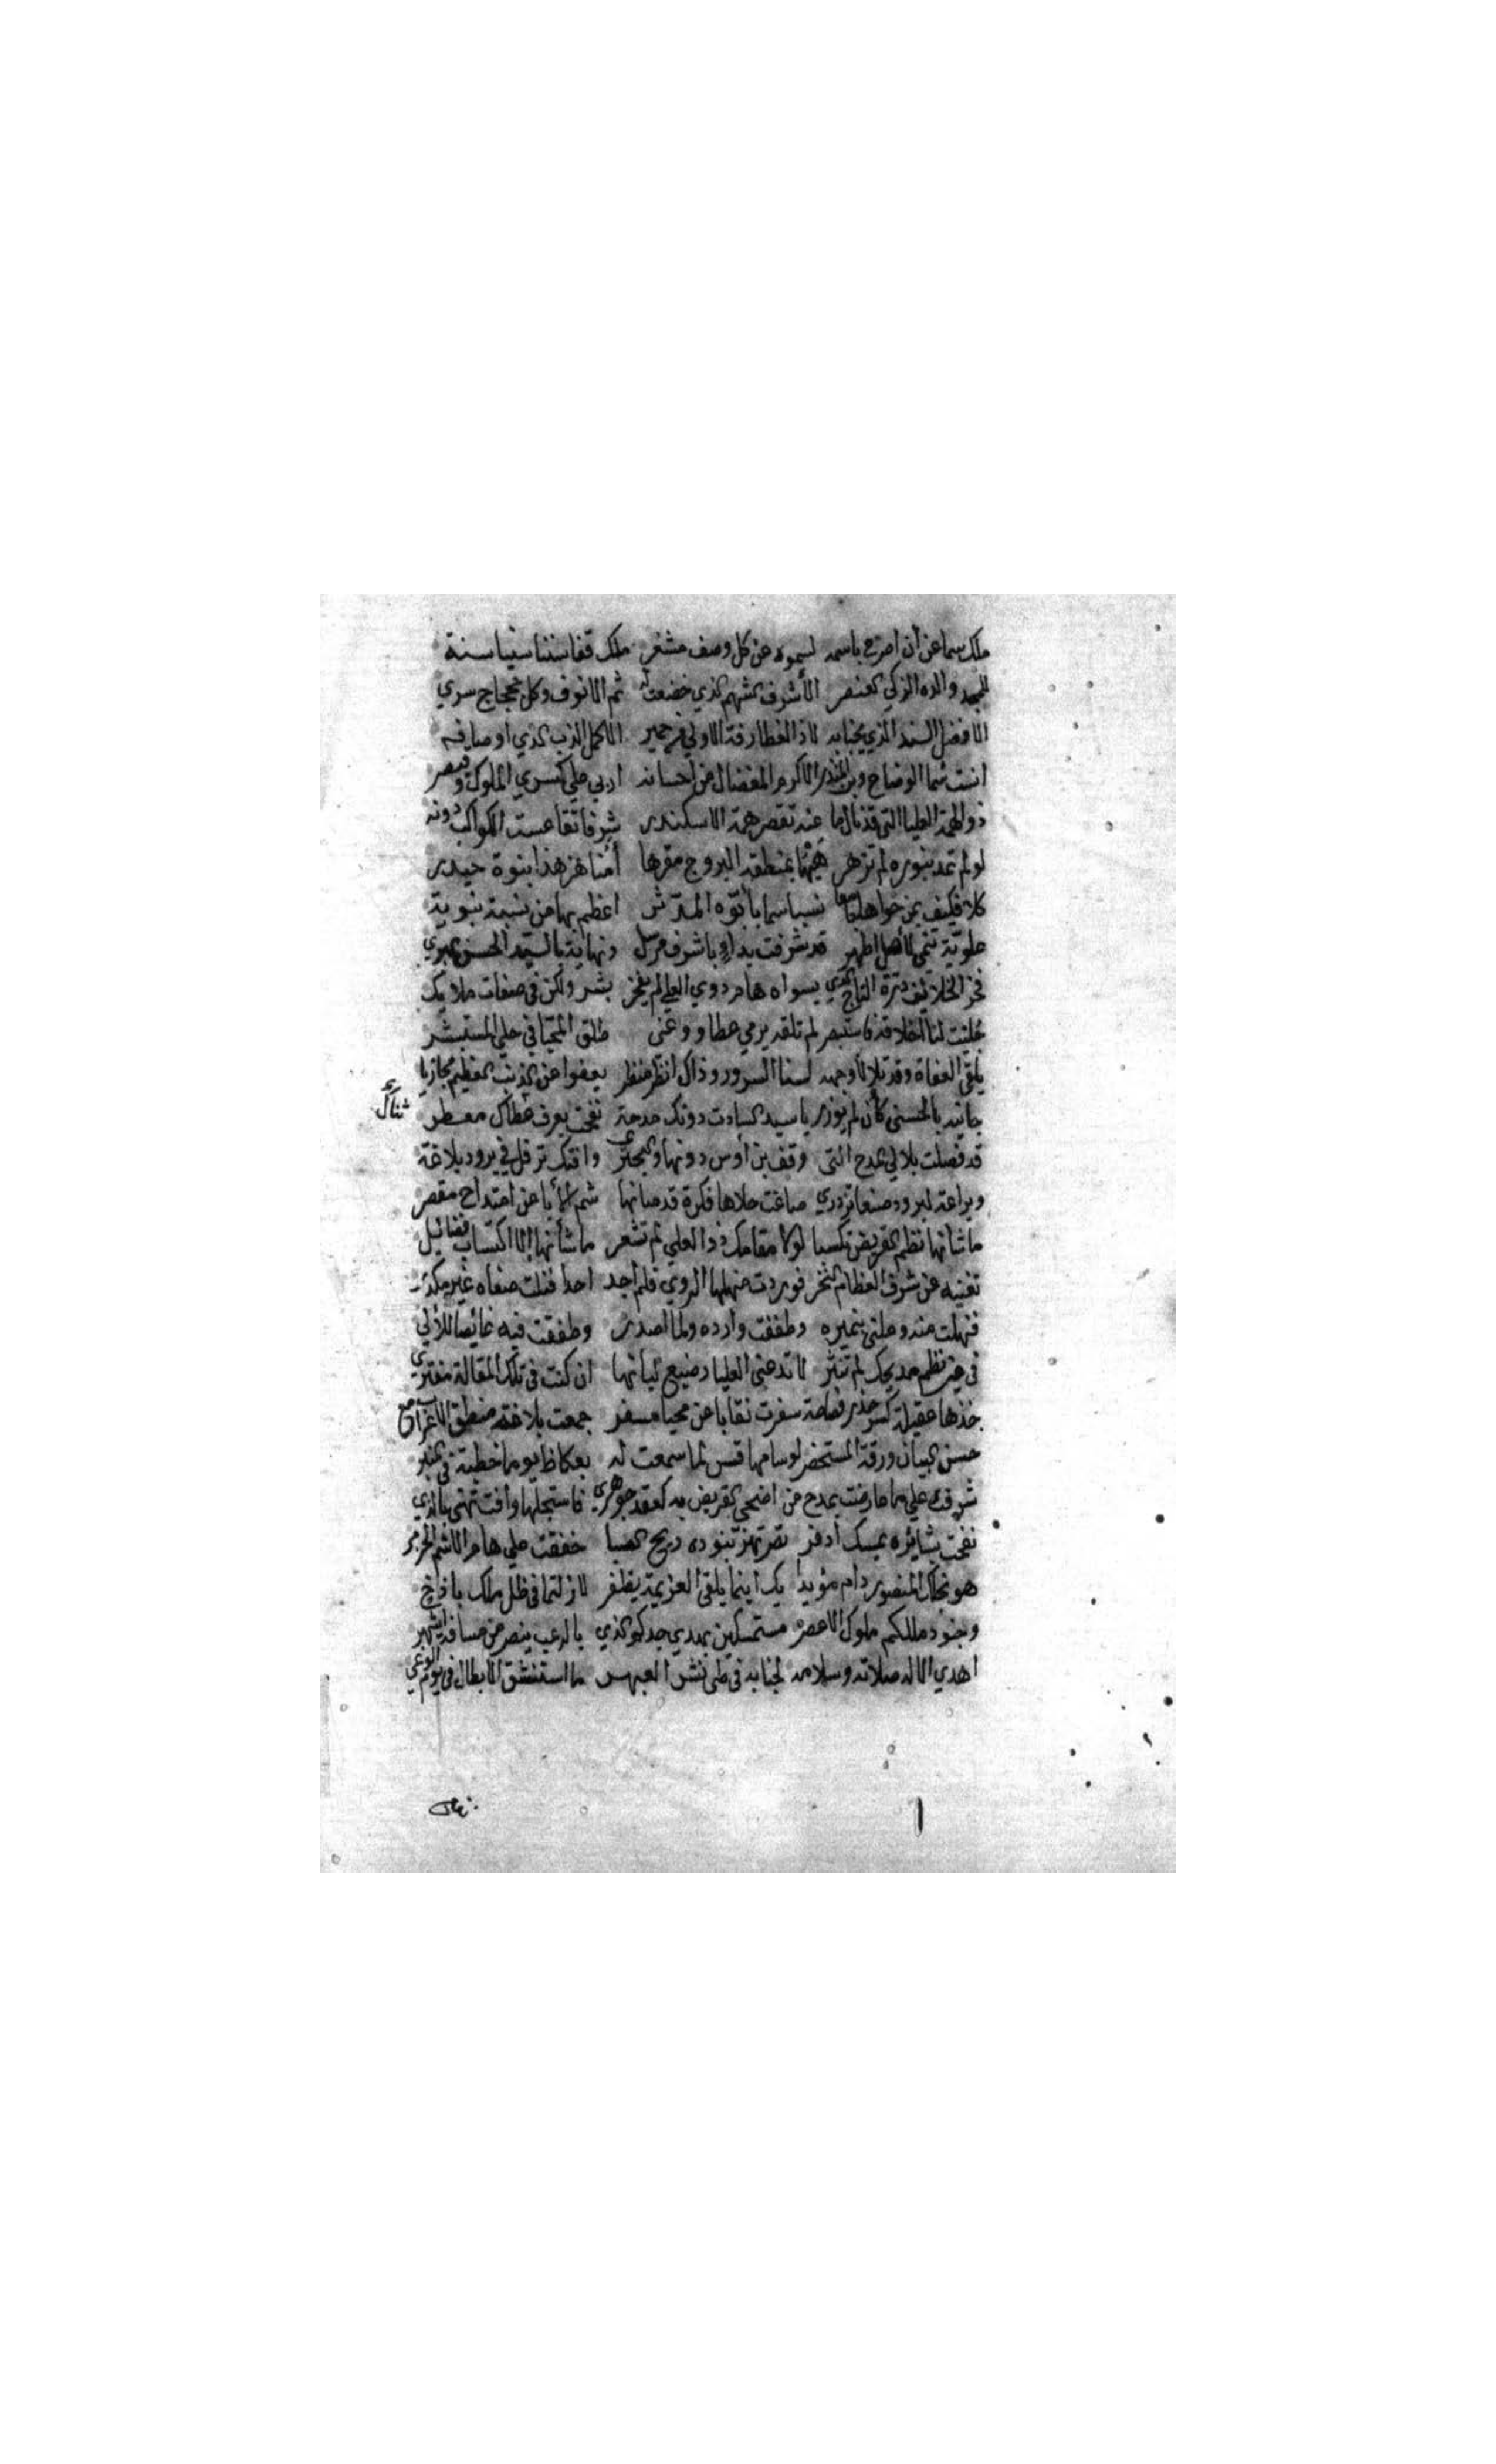 ملك سما عن أن اصرح باسمه لسموه عن كل وصف مشغر ملك قفا سننا سنيا سنة
للمجد والده الزكي العنصر الأشرف الشهم الذي خضعت له شم الانوف وكل حجاج سري
الافضل السند الذي بجنابه لاذ الغطارفة الاولي من حمير الاكمل الندب الذي اوصافه
انست شما الوضاح وبن المنذر الاكرم المفضال من احسانه اربي علي كسري الملوك وقيصر
ذو الهمة العليا التي قد نالها عنه تقصر همة الاسكندر شرفا تقاعست الكواكب دونه
لو لم تمد بنوره لم تزهر بمنطقة البروج مقرها أمناهز هذا بنوة حيدر
كلا فكيف بمن حواها نسبا سما بأبوة المدثر اعظم بها من نسبة نبوية
علوية تنمي لأصل اطهر قد شرفت بدا باشرف مرسل ونهاية بالسيد الحسن السري
فخر الخلائف درة التاج الذي بسواه هام ذوي العلي لم يفخر بشر ولكن في صفات ملايك
جليت لنا اخلاقه لم تلقه يومي عطا ووغى طلق المحيا في حلي المستبشر
يلقي العفاة وقد تلألأ وجهه لسنا السرور وذاك انظر منظر يعفوا عن الذنب العظيم مجازيا
جانيه بالحسنى كأن لم يوزر يا سيد السادت دونك مدحة نفحت بعرف معطر
ثناك
قد فصلت بلالي المدح التي وقف بن أوس دونها والبحتري وافتك ترفل في برود بلاغة
وبراعة لبرود صنعا تزدري صاغت حلاها فكرة قد صانها شم الأبا عن امتداح مقصر
ما شانها نظم القريض تكسبا لولا مقامك ذا العلي لم تشعر ما شأنها الا اكتساب فضائل
تغنيه عن شرف العظام النخر فوردت منهلها الروي فلم أجد احدا فنلت صفاه غير مكدر
فنهلت منه وعلني بنميره وطفقت وارده ولما اصدر وطفقت فيه غائصا للألي
في غير نظم مديحك لم تنثر لا تدعني العليا رضيع لبانها ان كنت في تلك المقالة مفتري
خذها عقيلة فصاحة سفرت نقابا عن محيا مسفر جمعت بلاغة منطق الاعراب مع
حسن البيان ورقة المستحضر لو سامها قس لما سمعت له بعكاظ يوما خطبة في المنبر
شرفت علي ما عارضت بمدح من اضحي القريض به كعقد جوهري فاستجلها وافت تهنى بالذي
نفحت بشائره بمسك أذفر نصر تهز بنوده ريح الصبا خفقت علي هام الاشم
هو نجلك المنصور دام مؤيدا بك اينما يلقي العزيمة يظفر لا زلتما في ظل ملك باذخ
وجنود مللكم ملوك الاعصر مستمسكين بهدي جدكم الذي بالرعب ينصر من مسافة اشهر
اهدي الاله صلاته وسلامه لجنابه في طي نشر العبهر ما استنشق الابطال في يوم الوغي